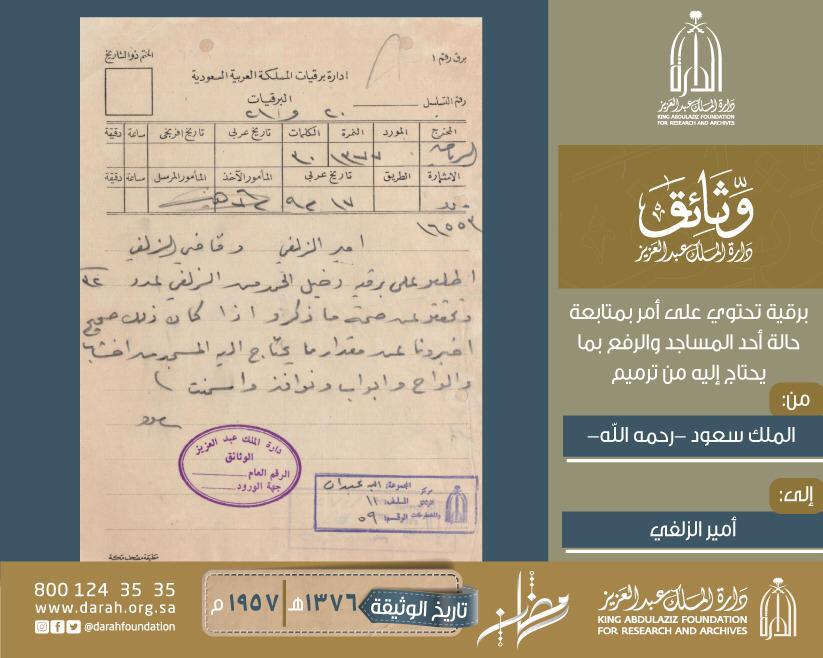 برق رقم ١
الختم ذو التاريخ
ادارة برقيات المملكة العربية السعودية
البرقيات
رقم التسلسل
المخرج المورد النمرة الكلمات تاريخ عربي تاريخ افرنجي ساعة دقيقة
الرياض ١٣٧٧ ٣٠
الاشارة الطريق تاريخ عربي المأمور الآخذ المأمور المرسل ساعة دقيقة
١٧
١٦٥٥٣
امير الزلفي وقاضي الزلفي
اطلعو على برقية دخيل الحمد من الزلفي لعدد
وتحققو عن صحة ما ذكرو اذا كان ذلك صحيح
اخبرونا عن مقدار ما يحتاج اليه المسجد من اخشاب
والواح وابواب ونوافذ واسمنت
سعود
دارة الملك عبد العزيز
الوثائق
الرقم العام
جهة الورود
مركز الوثائق والمخطوطات
المجموعة:
الملف: ١١
الرقم: ٥٩
مطبعة مصحف مكة
الدارة
دارة الملك عبد العزيز
KING ABDULAZIZ FOUNDATION
FOR RESEARCH AND ARCHIVES
وثائق
دارة الملك عبدالعزيز
برقية تحتوي على أمر بمتابعة
حالة أحد المساجد والرفع بما
يحتاج إليه من ترميم
من:
الملك سعود -رحمه الله-
إلى:
أمير الزلفي
800 124 35 35
www.darah.org.sa
@darahfoundation
تاريخ الوثيقة
١٣٧٦هـ
١٩٥٧م
رمضان
دارة الملك عبدالعزيز
KING ABDULAZIZ FOUNDATION
FOR RESEARCH AND ARCHIVES